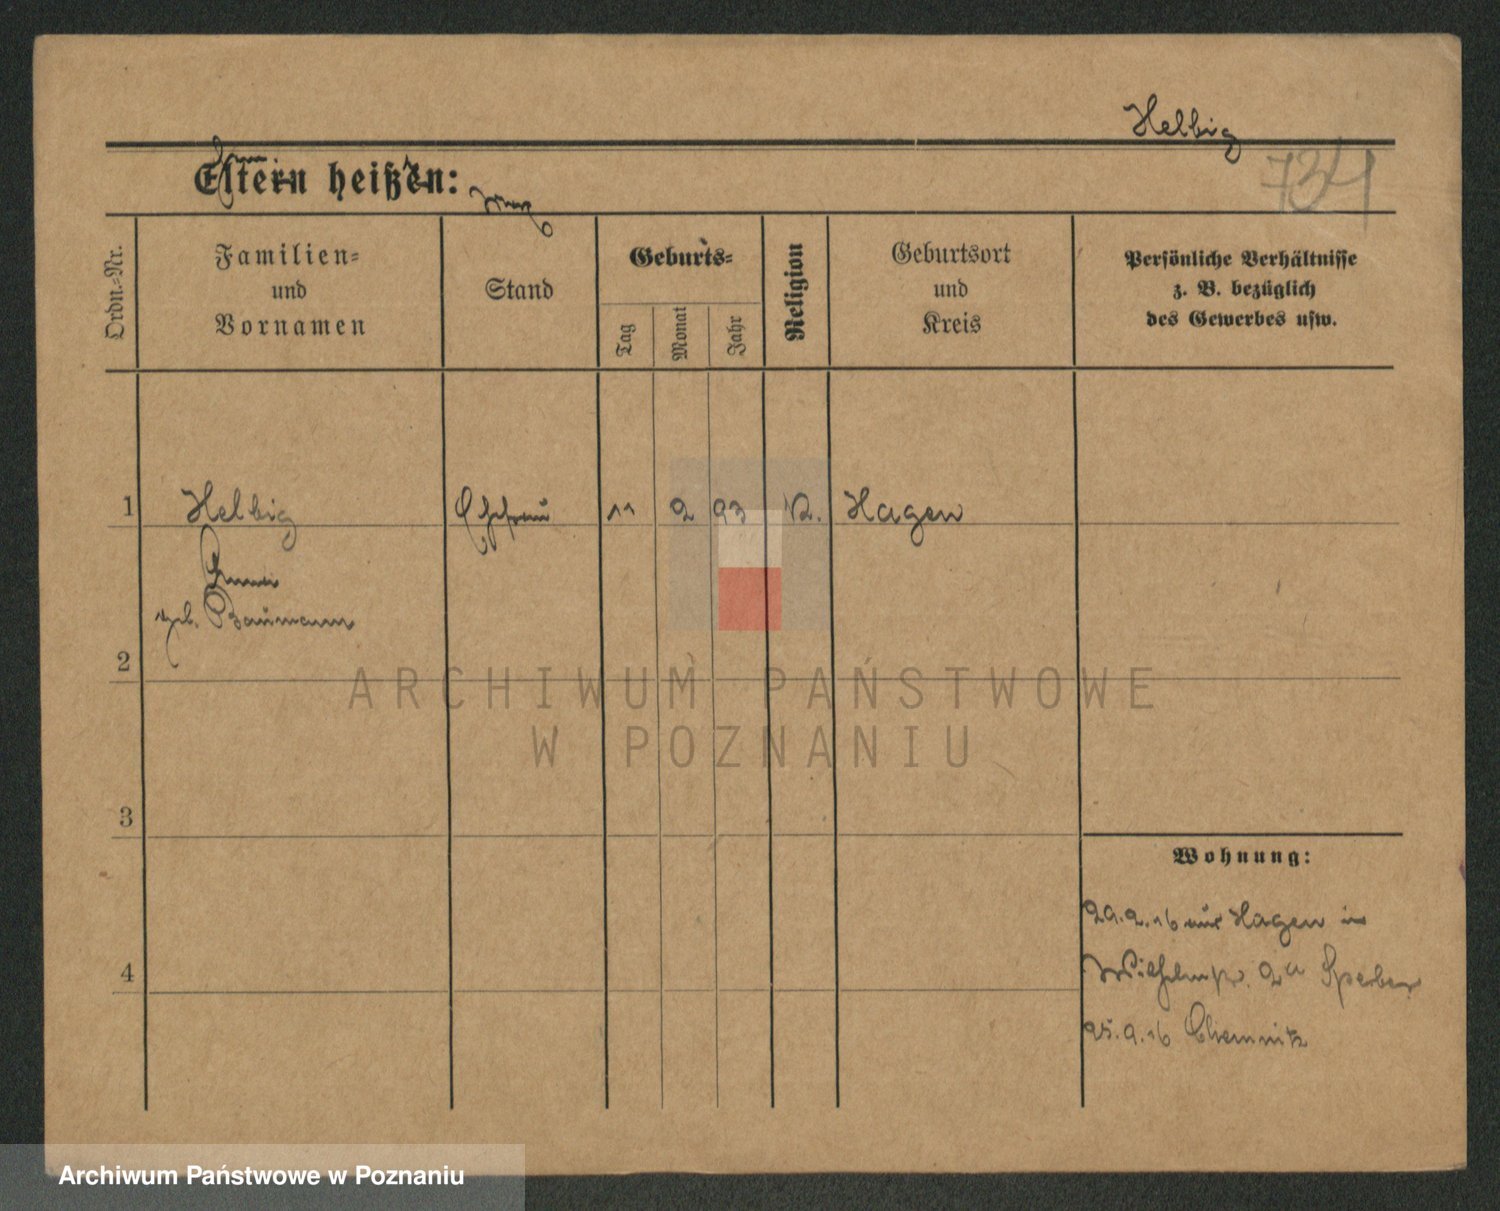 Helbig
734
Eltern heißen:
Ordn.-Nr.
Familien-
und
Vornamen
Stand
Geburts-
Tag
Monat
Jahr
Religion
Geburtsort
und
Kreis
Persönliche Verhältnisse
z. B. bezüglich
des Gewerbes usw.
1 Helbig Ehefrau 11 2 93 Hagen
geb. Baumann
2
3
4
Wohnung:
29.2.16 aus Hagen in
Wilhelmstr. 2a Sperber
25.9.16 Chemnitz
ARCHIWUM PAŃSTWOWE
W POZNANIU
Archiwum Państwowe w Poznaniu